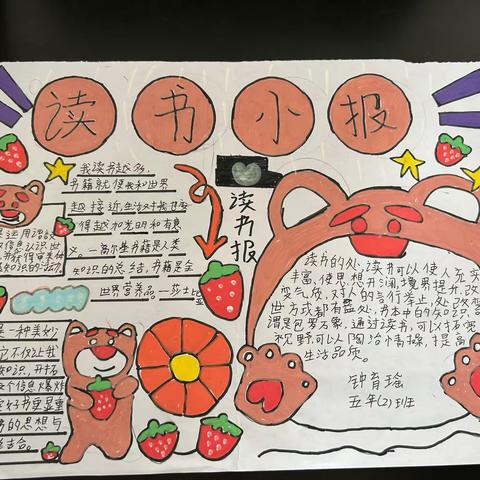 读书小报
我读书越多,
书籍就使我和世界
越接近,生活对我也变
得越加光明和有意
义。—高尔基书籍是人类
知识的总结,书籍是全
世界营养品。—莎士比亚
读书报
是一种美妙
它不仅让我
知识,开拓
个信息爆炸
读好书更显重
书的思想与
读书的处,读书可以使人充实
丰富,使思想开阔,境界提升,改
变气质,对人的言行举止,处
世方式都有益处,书本中的知识,
谓是包罗万象,通过读书,可以
视野可以陶冶情操,提高
生活品质。
钟育瑶
五年(2)班